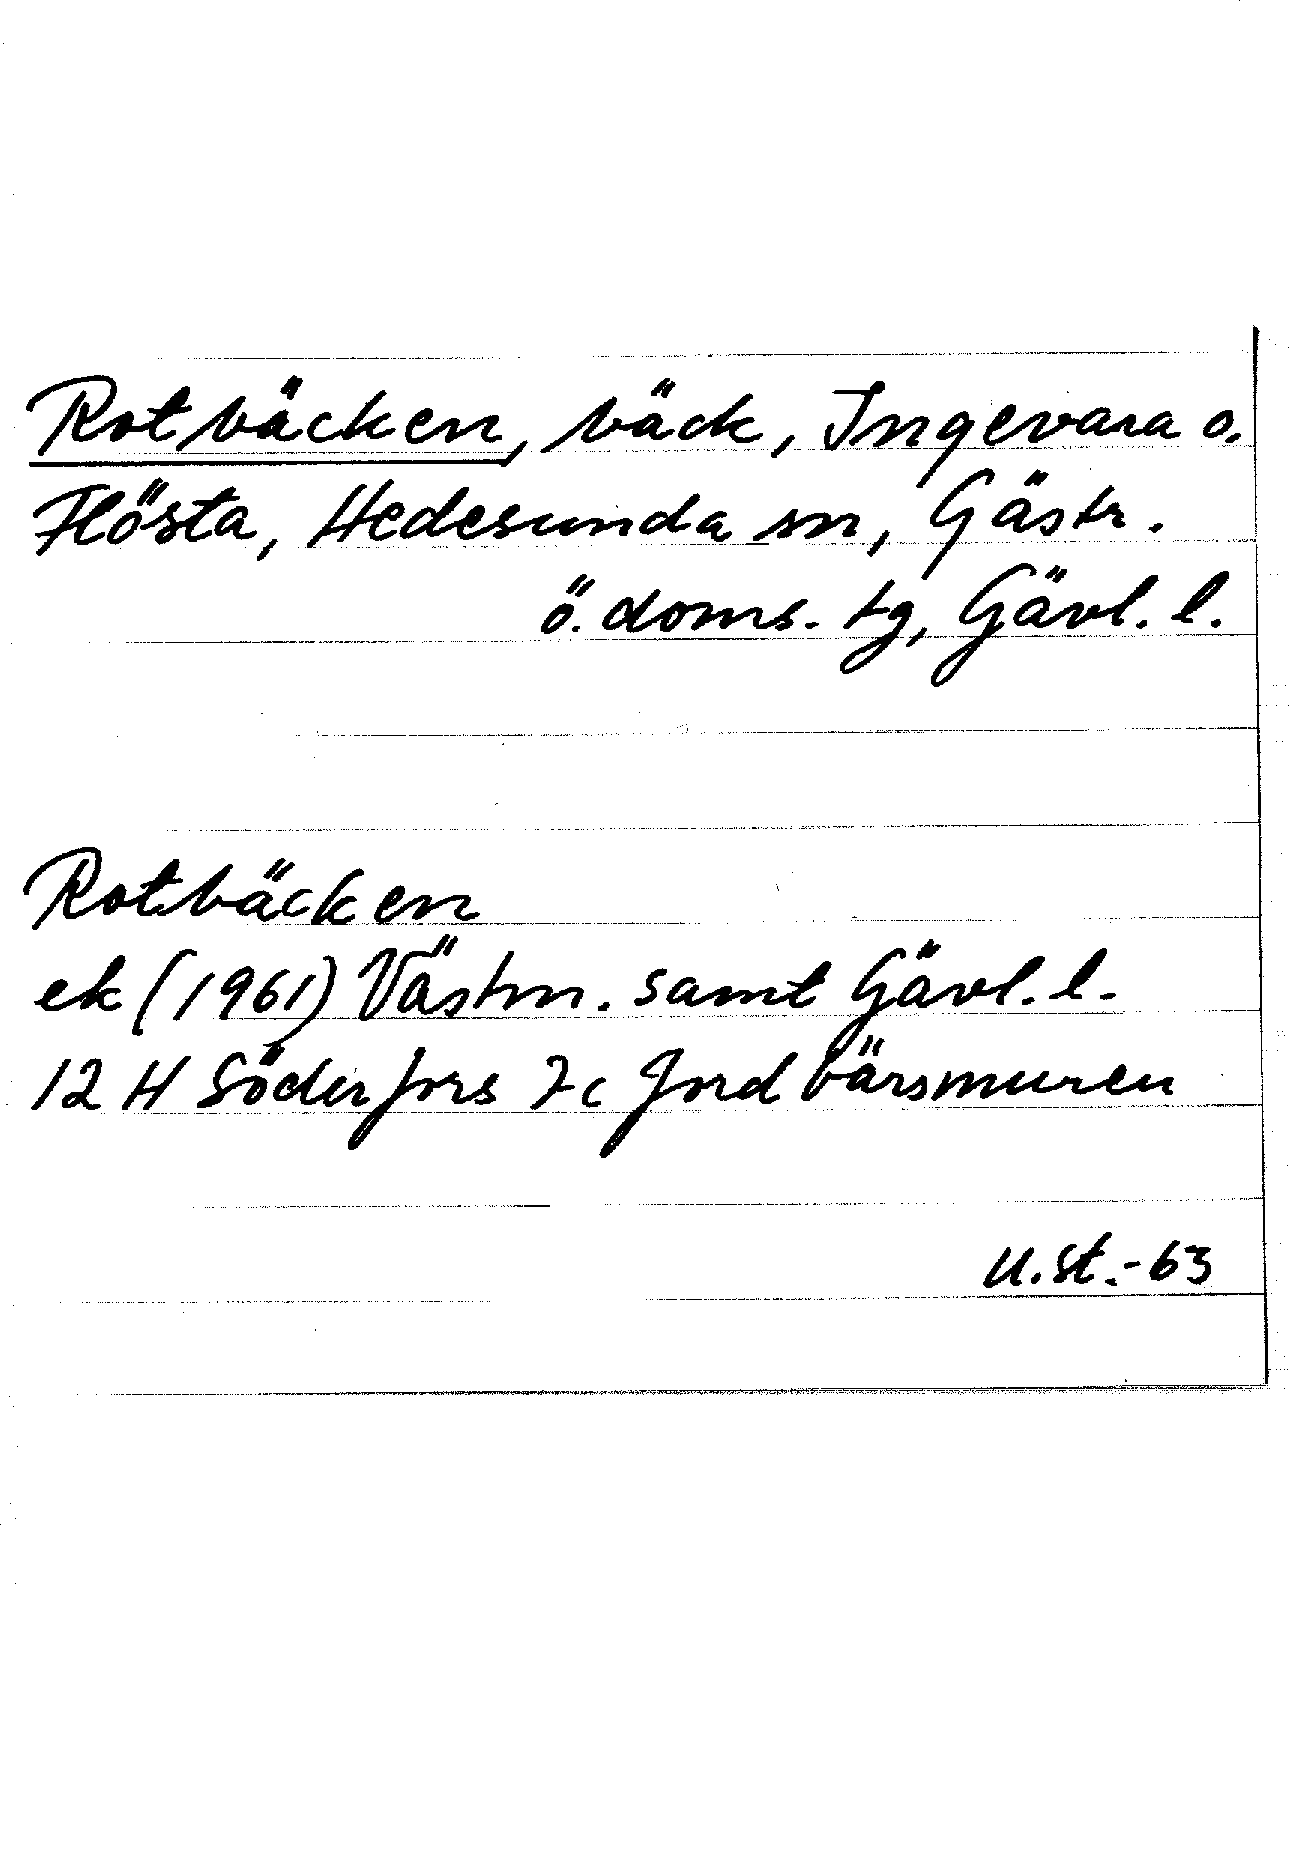 Rotbäcken, bäck, Ingevara o.
Flösta, Hedesunda sn, Gästr.
ö. doms. tg, Gävl. l.
Rotbäcken
ek (1961) Västm. samt Gävl. l.
12 H Söderfors 7c Jordbärsmuren
U.St.-63